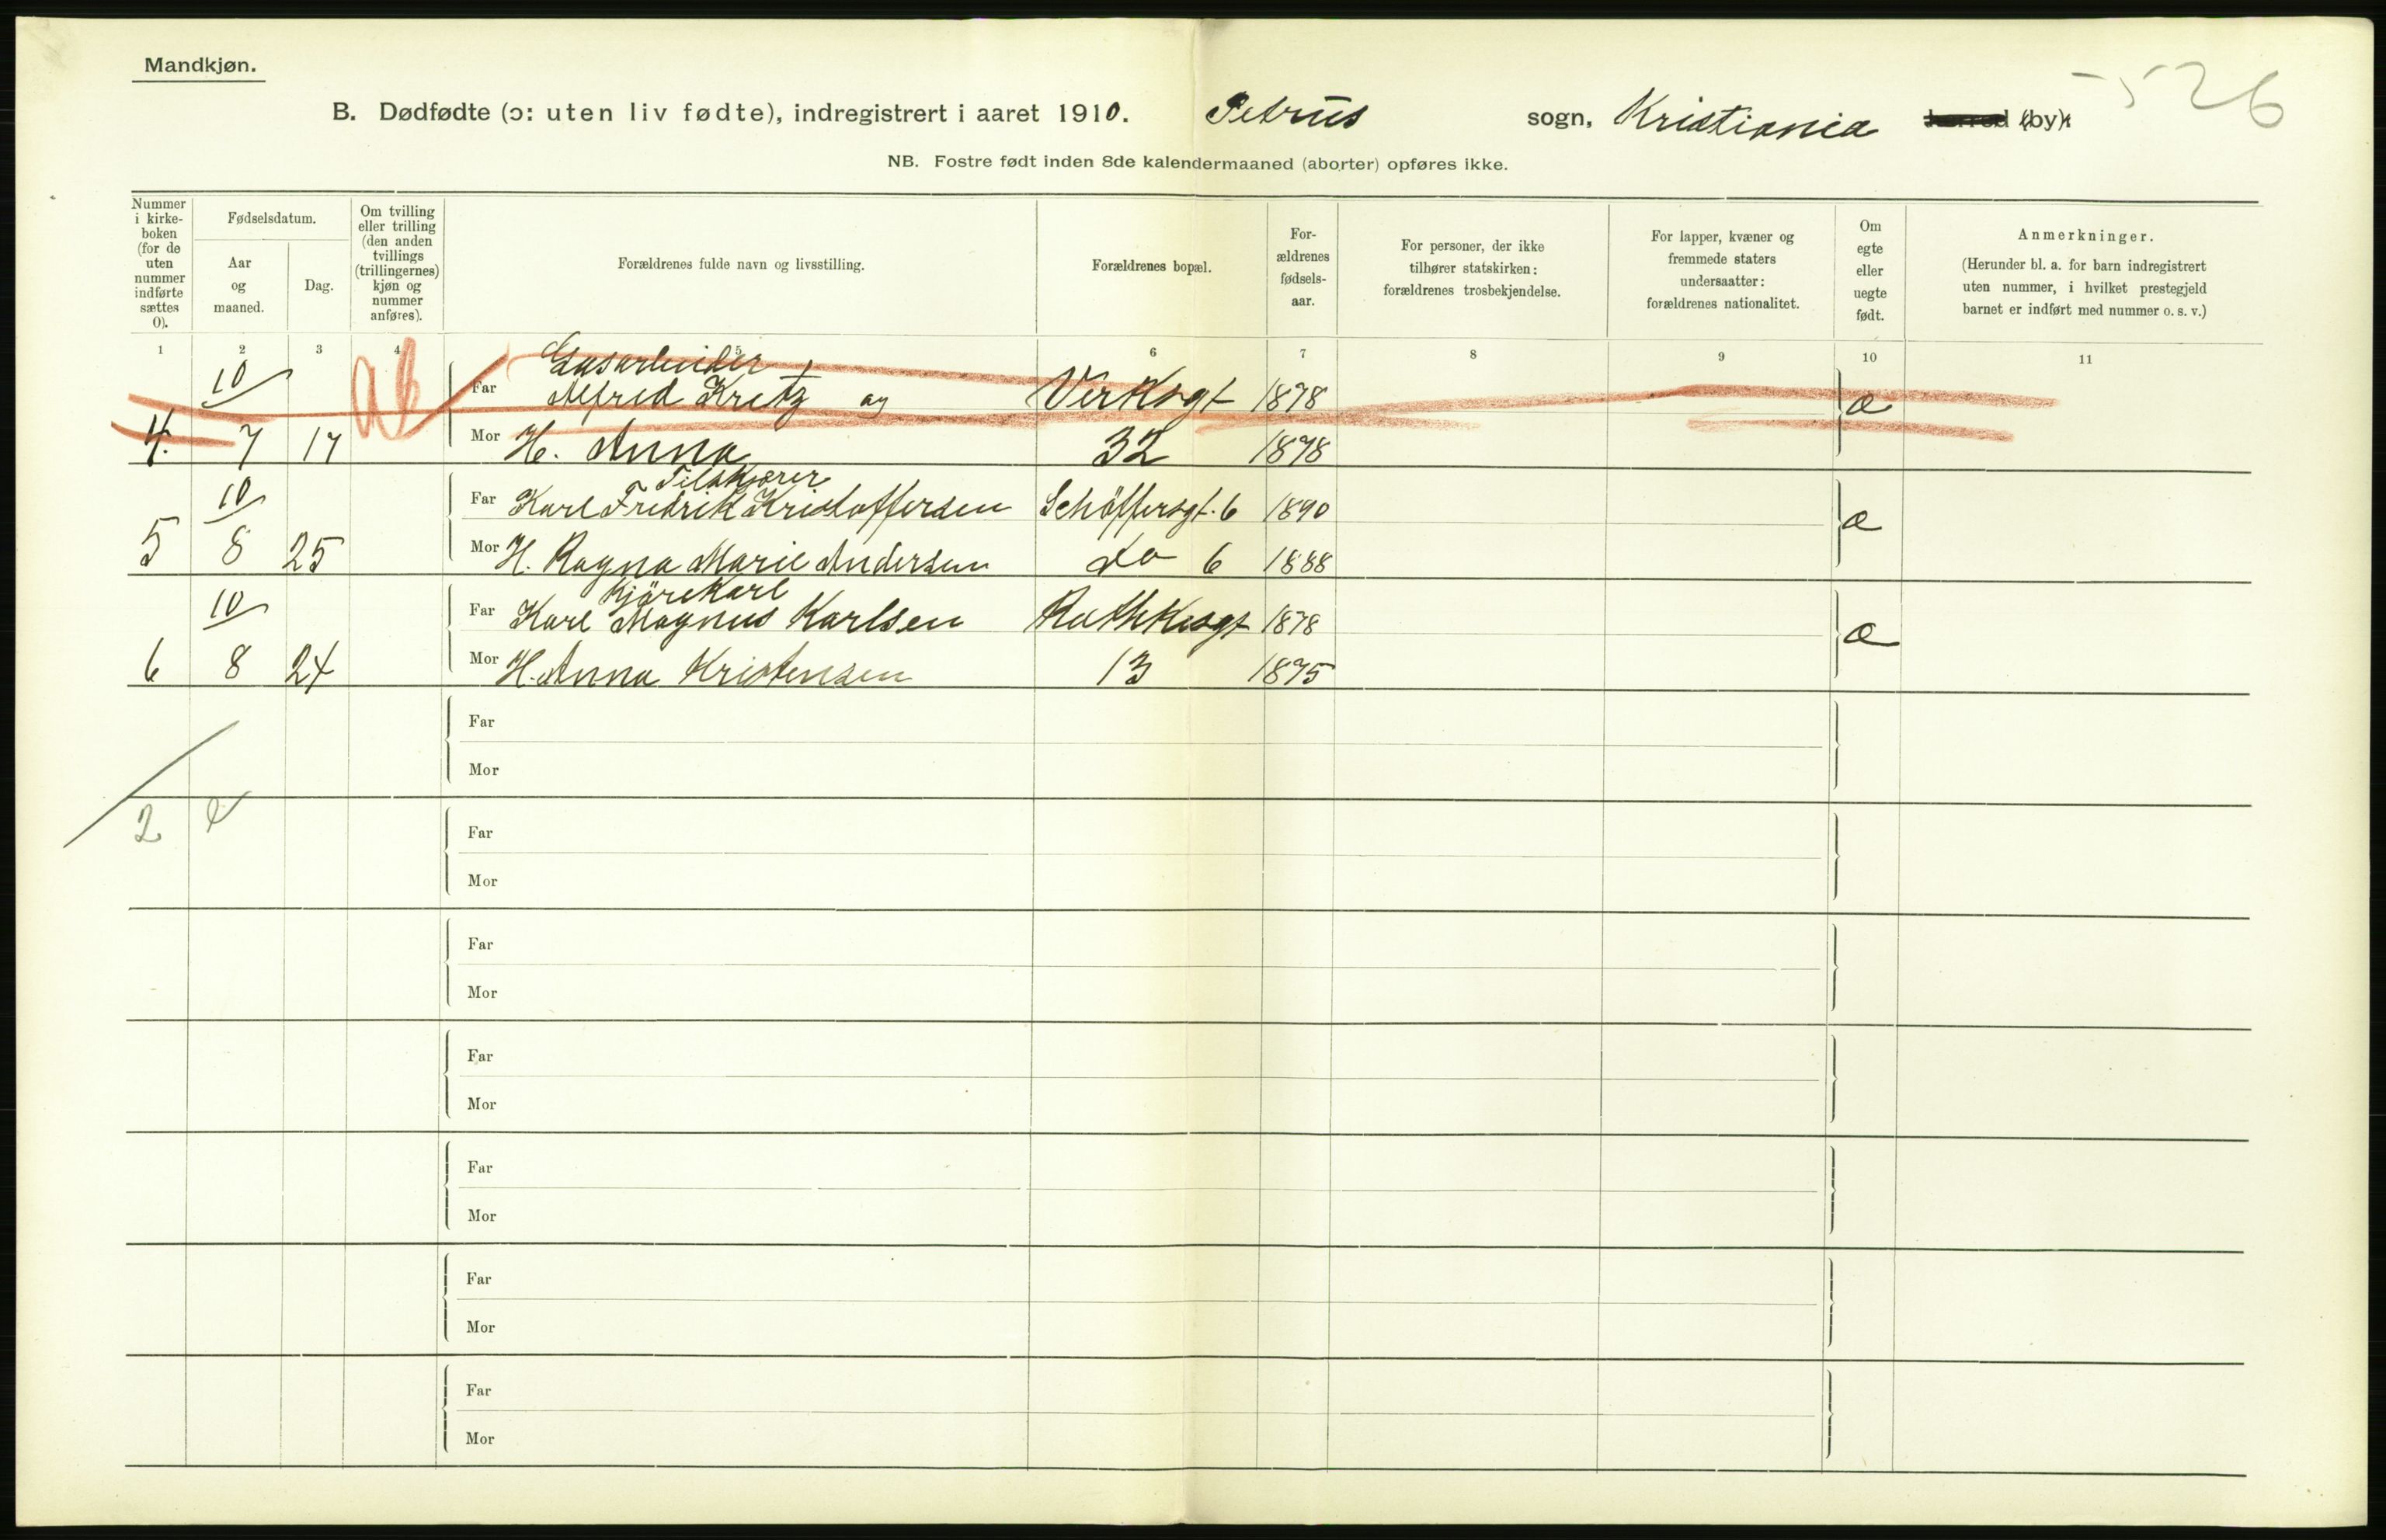 Mandkjøn.
526
B. Dødfødte (ɔ: uten liv fødte), indregistrert i aaret 1910. Petrus sogn, Kristiania herred (by).
NB. Fostre født inden 8de kalendermaaned (aborter) opføres ikke.
Nummer i kirkeboken (for de uten nummer indførte sættes 0).
Fødselsdatum.
Aar og maaned.
Dag.
Om tvilling eller trilling (den anden tvillings (trillingernes) kjøn og nummer anføres).
Forældrenes fulde navn og livsstilling.
Forældrenes bopæl.
For-ældrenes fødsels-aar.
For personer, der ikke tilhører statskirken: forældrenes trosbekjendelse.
For lapper, kvæner og fremmede staters undersaatter: forældrenes nationalitet.
Om egte eller uegte født.
Anmerkninger.
(Herunder bl. a. for barn indregistrert uten nummer, i hvilket prestegjeld barnet er indført med nummer o. s. v.)
1 2 3 4 5 6 7 8 9 10 11
Gasarbeider
10 ab Far Alfred Kretz og Verksgt 1878 æ
4. 7 17 Mor H. Anna 32 1878
Filskjærer
10 Far Karl Fredrik Kristoffersen Schöffersgt. 6 1890 æ
5 8 25 Mor H. Ragna Marie Andersen do 6 1888
Kjörekarl
10 Far Karl Magnus Karlsen Rathkesgt 1878 æ
6 8 24 Mor H. Anna Kristensen 13 1875
Far
Mor
2 e
Far
Mor
Far
Mor
Far
Mor
Far
Mor
Far
Mor
Far
Mor